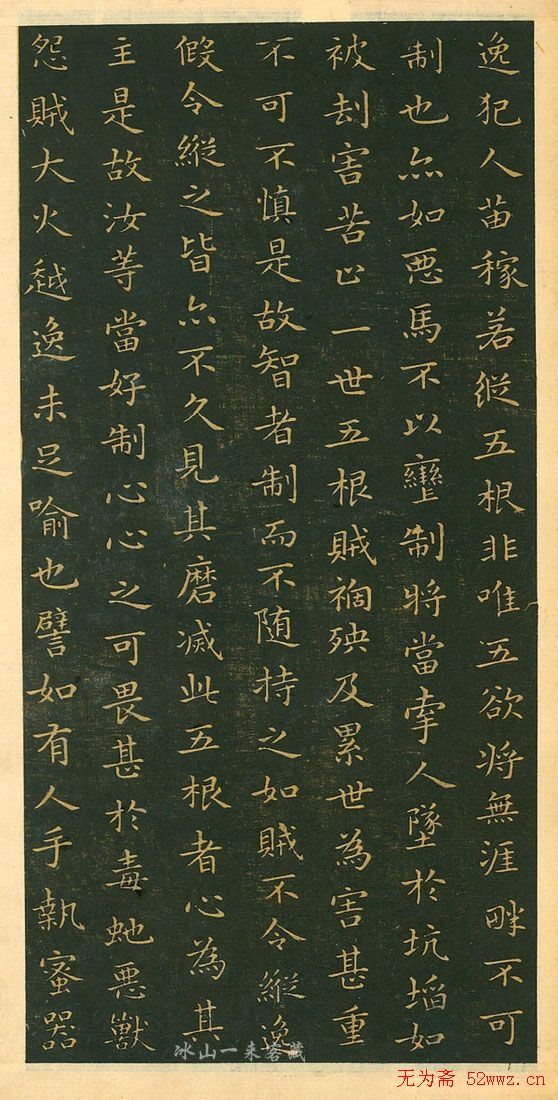 逸犯人苗稼若縱五根非唯五欲將無涯畔不可
制也亦如惡馬不以轡制將當牽人墜於坑埳如
被刦害苦止一世五根賊禍殃及累世為害甚重
不可不慎是故智者制而不随持之如賊不令縱逸
假令縱之皆亦不久見其磨滅此五根者心為其
主是故汝等當好制心心之可畏甚於毒虵惡獸
怨賊大火越逸未足喻也譬如有人手執蜜器
冰山一来客藏
无为斋 52wwz.cn